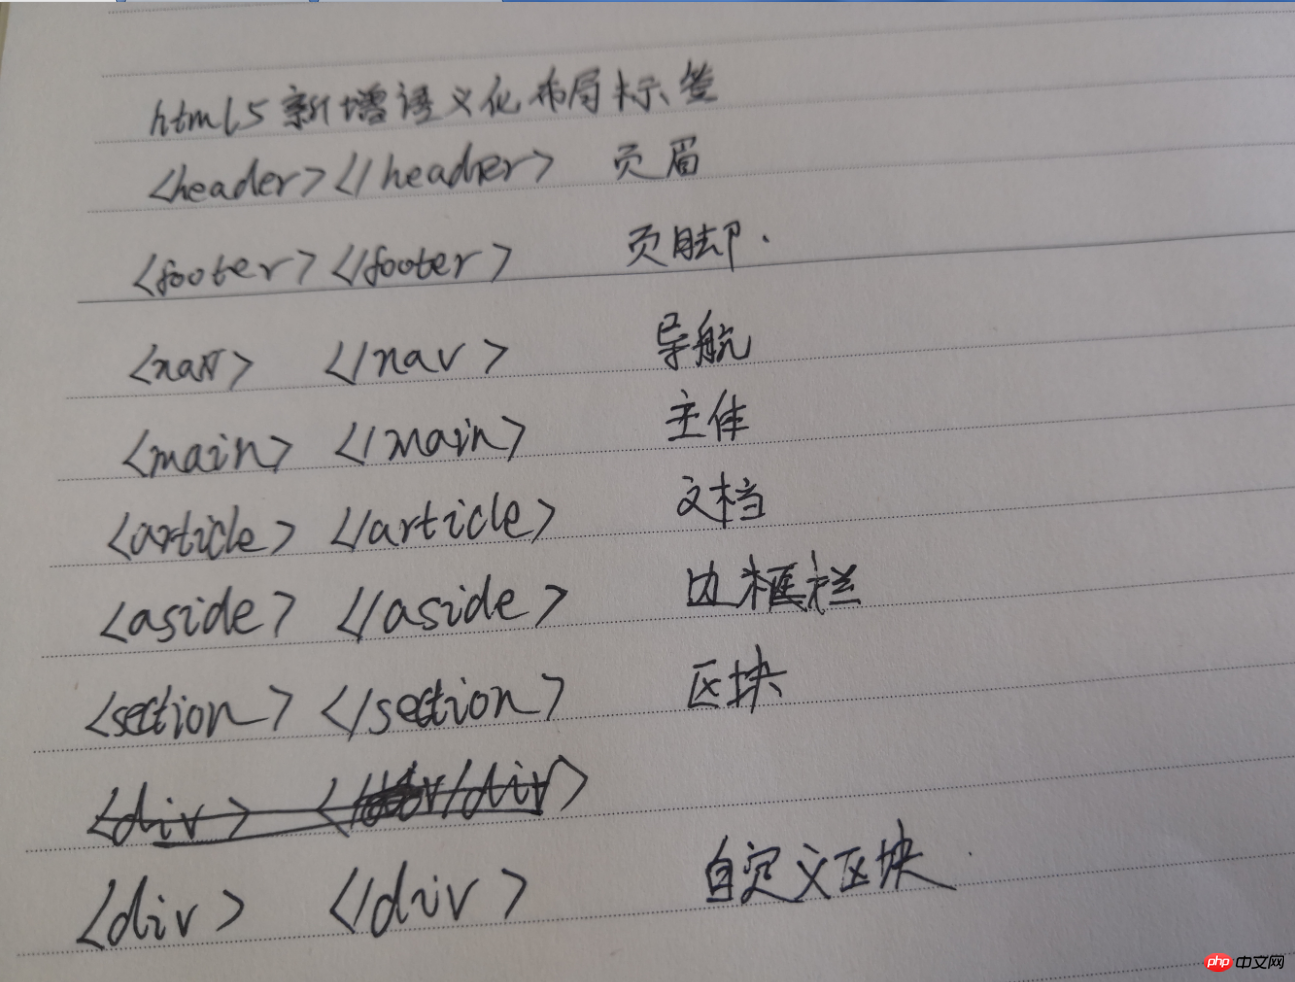 html5新增语义化布局标签
<header></header> 页眉
<footer></footer> 页脚.
<nav> </nav> 导航
<main> </main> 主体
<article> </article> 文档
<aside> </aside> 边框栏
<section> </section> 区块
<div> </div>
<div> </div> 自定义区块.
php 中文网